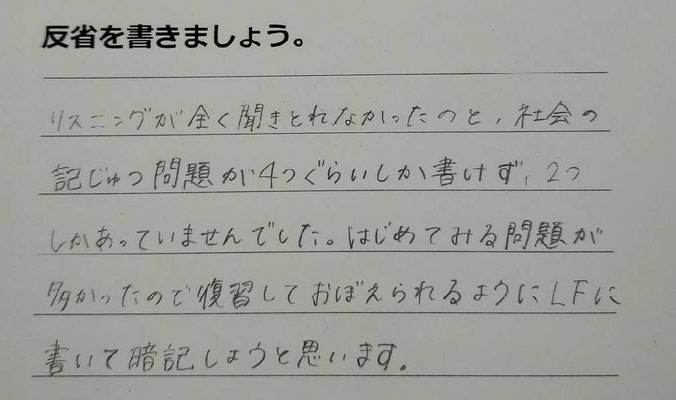 反省を書きましょう。
リスニングが全く聞きとれなかったのと、社会の
記じゅつ問題が4つぐらいしか書けず、2つ
しかあっていませんでした。はじめてみる問題が
多かったので復習しておぼえられるようにLFに
書いて暗記しようと思います。